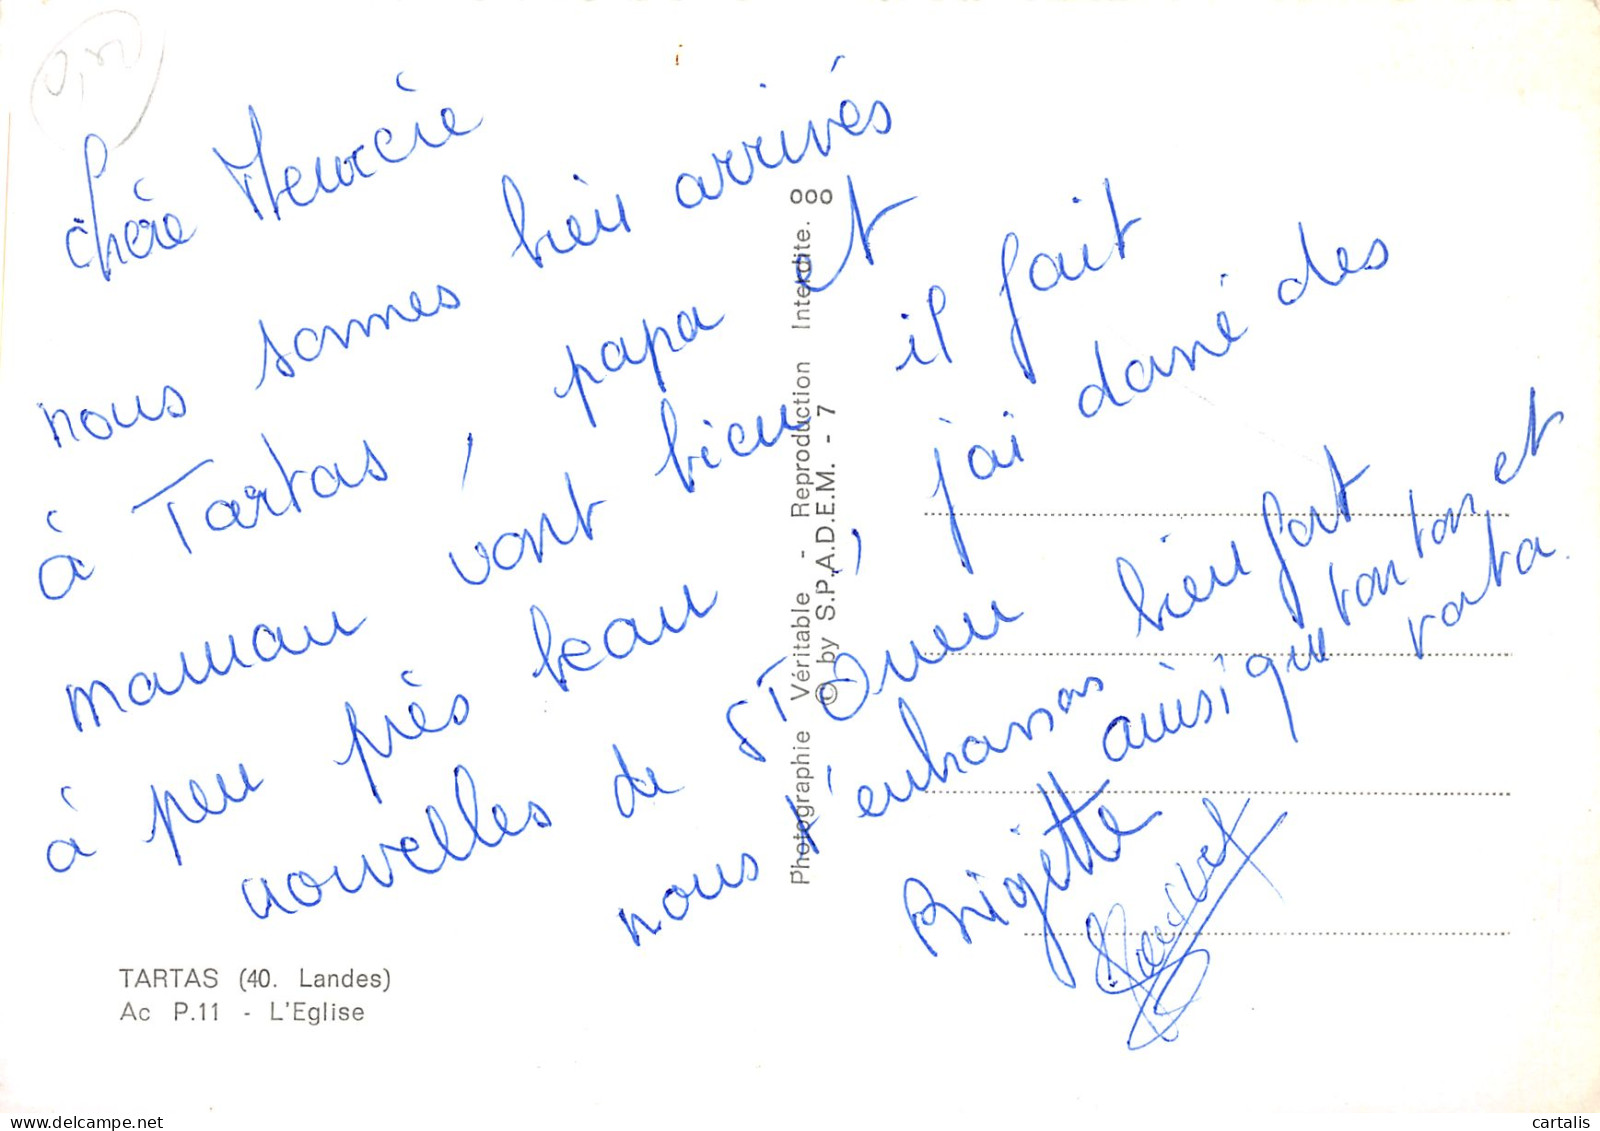 chère
nous sommes bien arrivés
à Tartas, papa et
maman vont bien, il fait
à peu près beau, j'ai donné des
nouvelles de St Ouen bien fort
nous t'embrassons ainsi que tonton et
tata.
Brigitte
TARTAS (40. Landes)
Ac P.11 - L'Eglise
Photographie Véritable - Reproduction Interdite.
© by S.P.A.D.E.M. - 7
cartalis